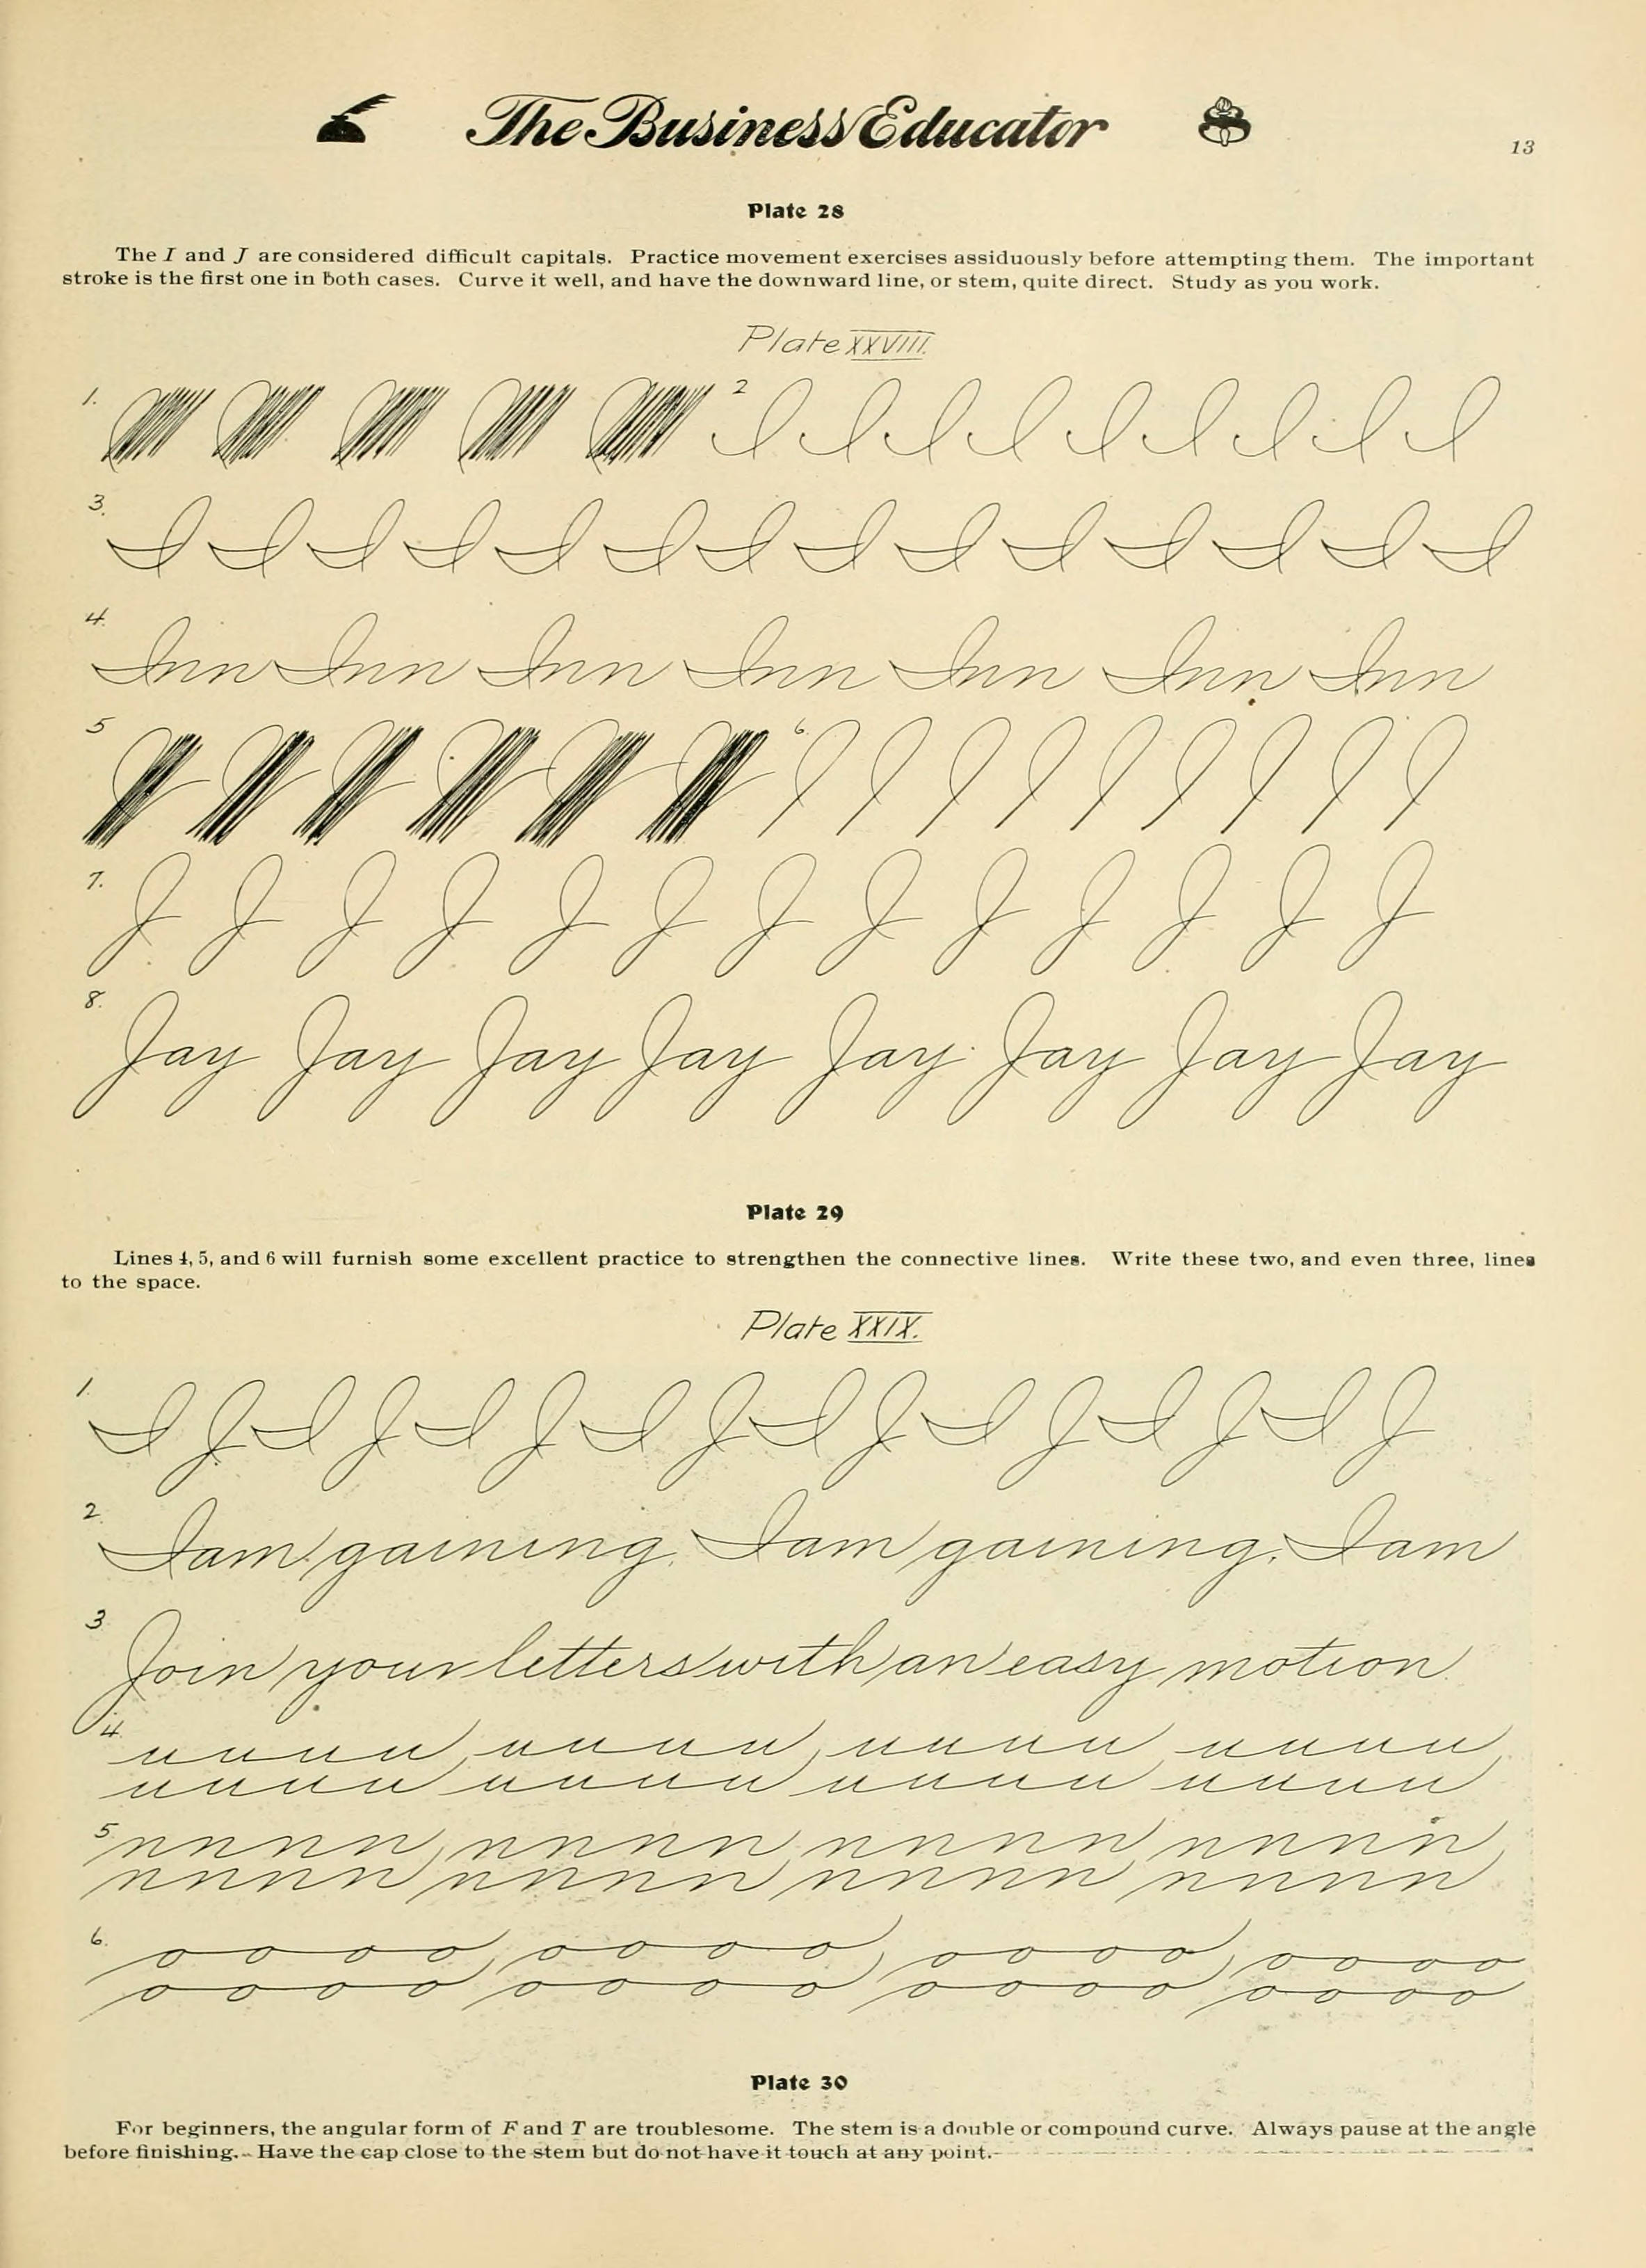 The Business Educator
13
Plate 28
The I and J are considered difficult capitals. Practice movement exercises assiduously before attempting them. The important
stroke is the first one in both cases. Curve it well, and have the downward line, or stem, quite direct. Study as you work.
Plate XXVIII.
1. 2 I I I I I I I I I
3. I I I I I I I I I I I I I I
4. Inn Inn Inn Inn Inn Inn Inn
5 6.
7. J J J J J J J J J J J J J
8. Jay Jay Jay Jay Jay Jay Jay Jay
Plate 29
Lines 4, 5, and 6 will furnish some excellent practice to strengthen the connective lines. Write these two, and even three, lines
to the space.
Plate XXIX.
1. I J I J I J I J I J I J I J I J
2. I am gaining. I am gaining. I am
3 Join your letters with an easy motion.
4. u u u u u u u u u u u u u u u u
u u u u u u u u u u u u u u u u
5 n n n n n n n n n n n n n n n n
n n n n n n n n n n n n n n n n
6. o o o o o o o o o o o o o o o o
o o o o o o o o o o o o o o o o
Plate 30
For beginners, the angular form of F and T are troublesome. The stem is a double or compound curve. Always pause at the angle
before finishing. Have the cap close to the stem but do not have it touch at any point.